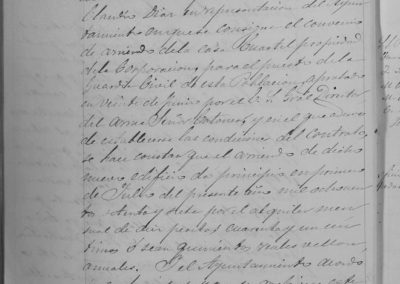 Claudio Diaz en representacion del Ayun
tamiento en que se consigna el convenio
de arriendo de la casa Cuartel propiedad
de la Corporacion, para el puesto de la
Guardia Civil de esta Poblacion, aprobado
en veinte de Junio por el Director
del arma Señor y en el que a mas
de establecerse las condiciones del Contrato,
se hace constar que el arriendo de dicho
nuevo edificio da principio en primero
de Julio del presente año mil ochocien
tos ochenta y siete por el alquiler men
sual de diez pesetas cuarenta y un cen
timos ó sean quinientos reales vellon,
anuales. Y el Ayuntamiento acordó